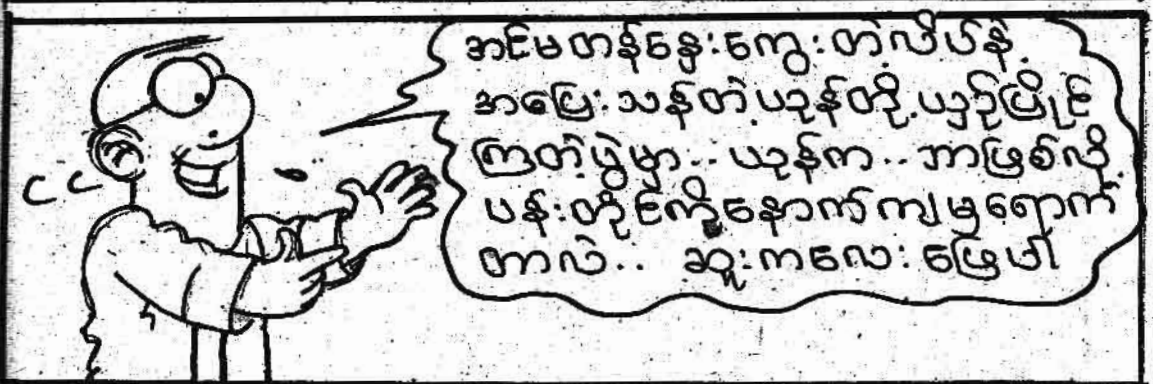 အင်မတန်နှေးကွေးတဲ့လိပ်နဲ့
အပြေးသန်တဲ့ယုန်တို့ယှဉ်ပြိုင်
ကြတဲ့ပွဲမှာ.. ယုန်က.. ဘာဖြစ်လို့
ပန်းတိုင်ကိုနောက်ကျမှရောက်
တာလဲ.. ဆူးကလေးဖြေပါ